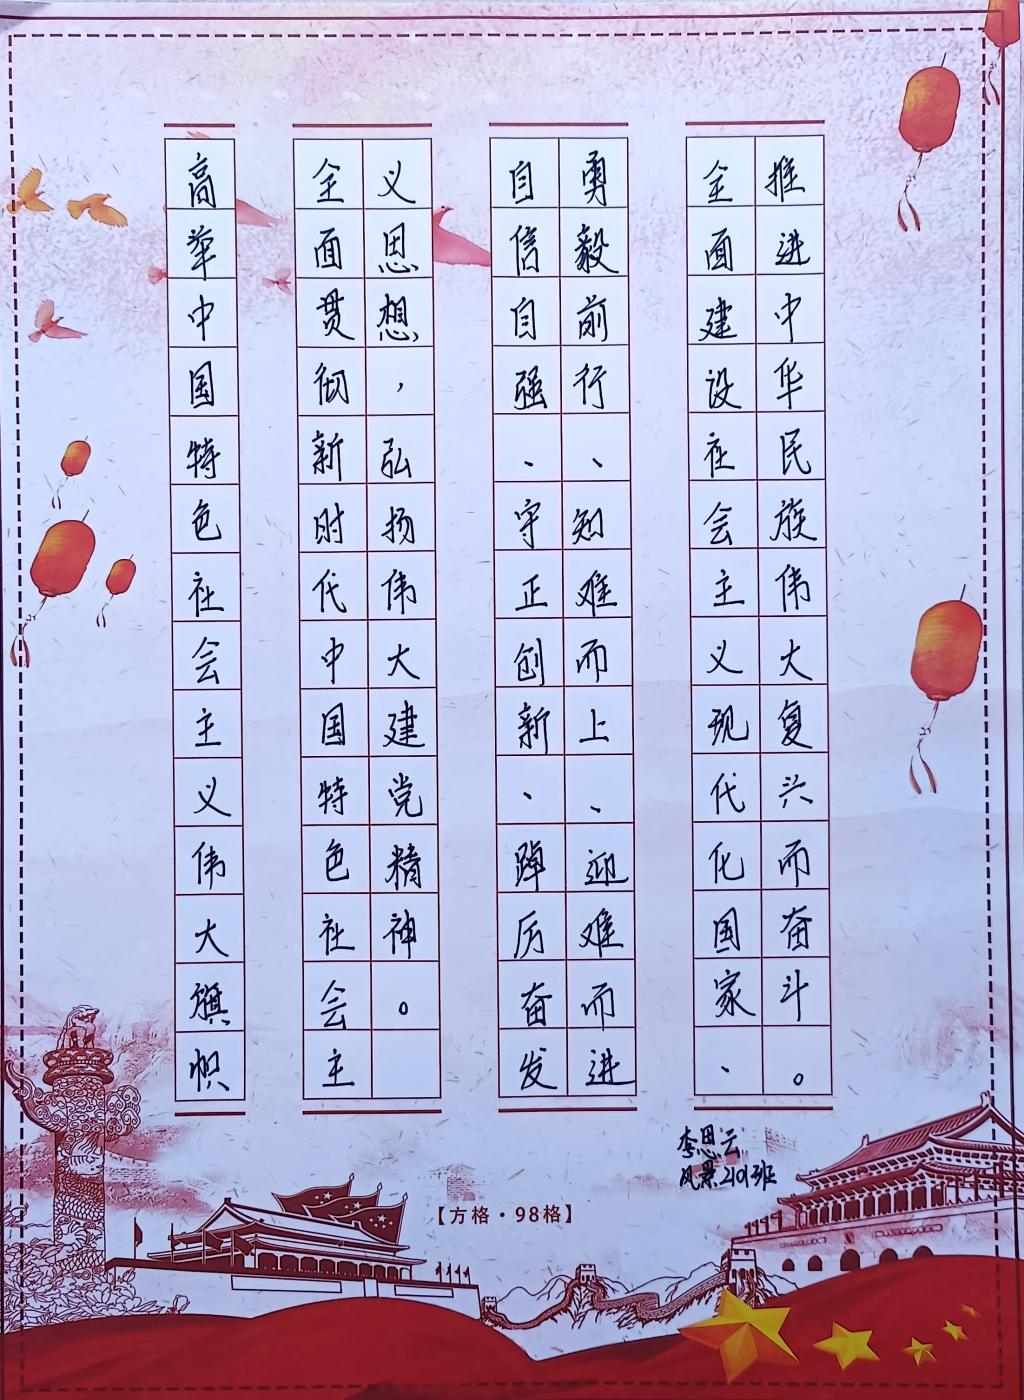 高举中国特色社会主义伟大旗帜
全面贯彻新时代中国特色社会主
义思想，弘扬伟大建党精神。
自信自强、守正创新、踔厉奋发
勇毅前行、知难而上、迎难而进
全面建设社会主义现代化国家、
推进中华民族伟大复兴而奋斗。
李思云
风景2101班
【方格·98格】